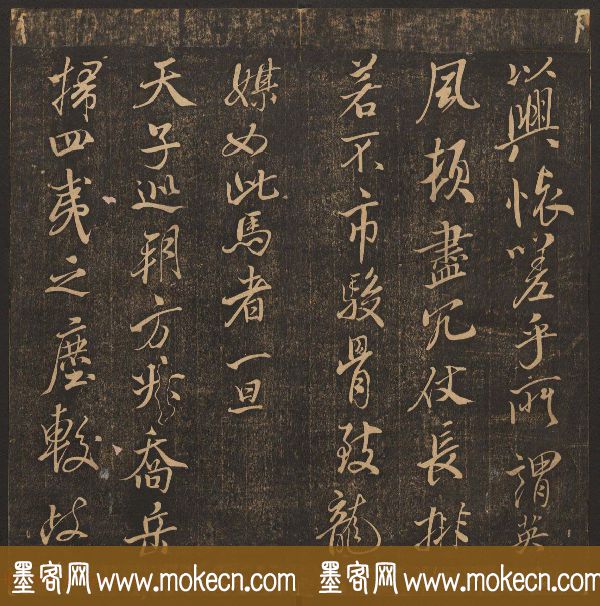 以興懷嗟乎所謂英
風頓盡冗仗長排
若不市駿骨致龍
媒如此馬者一旦
天子巡朔方喬岳
掃四夷之塵較岐
墨客网 www.mokecn.com 墨客网 www.mokecn.com